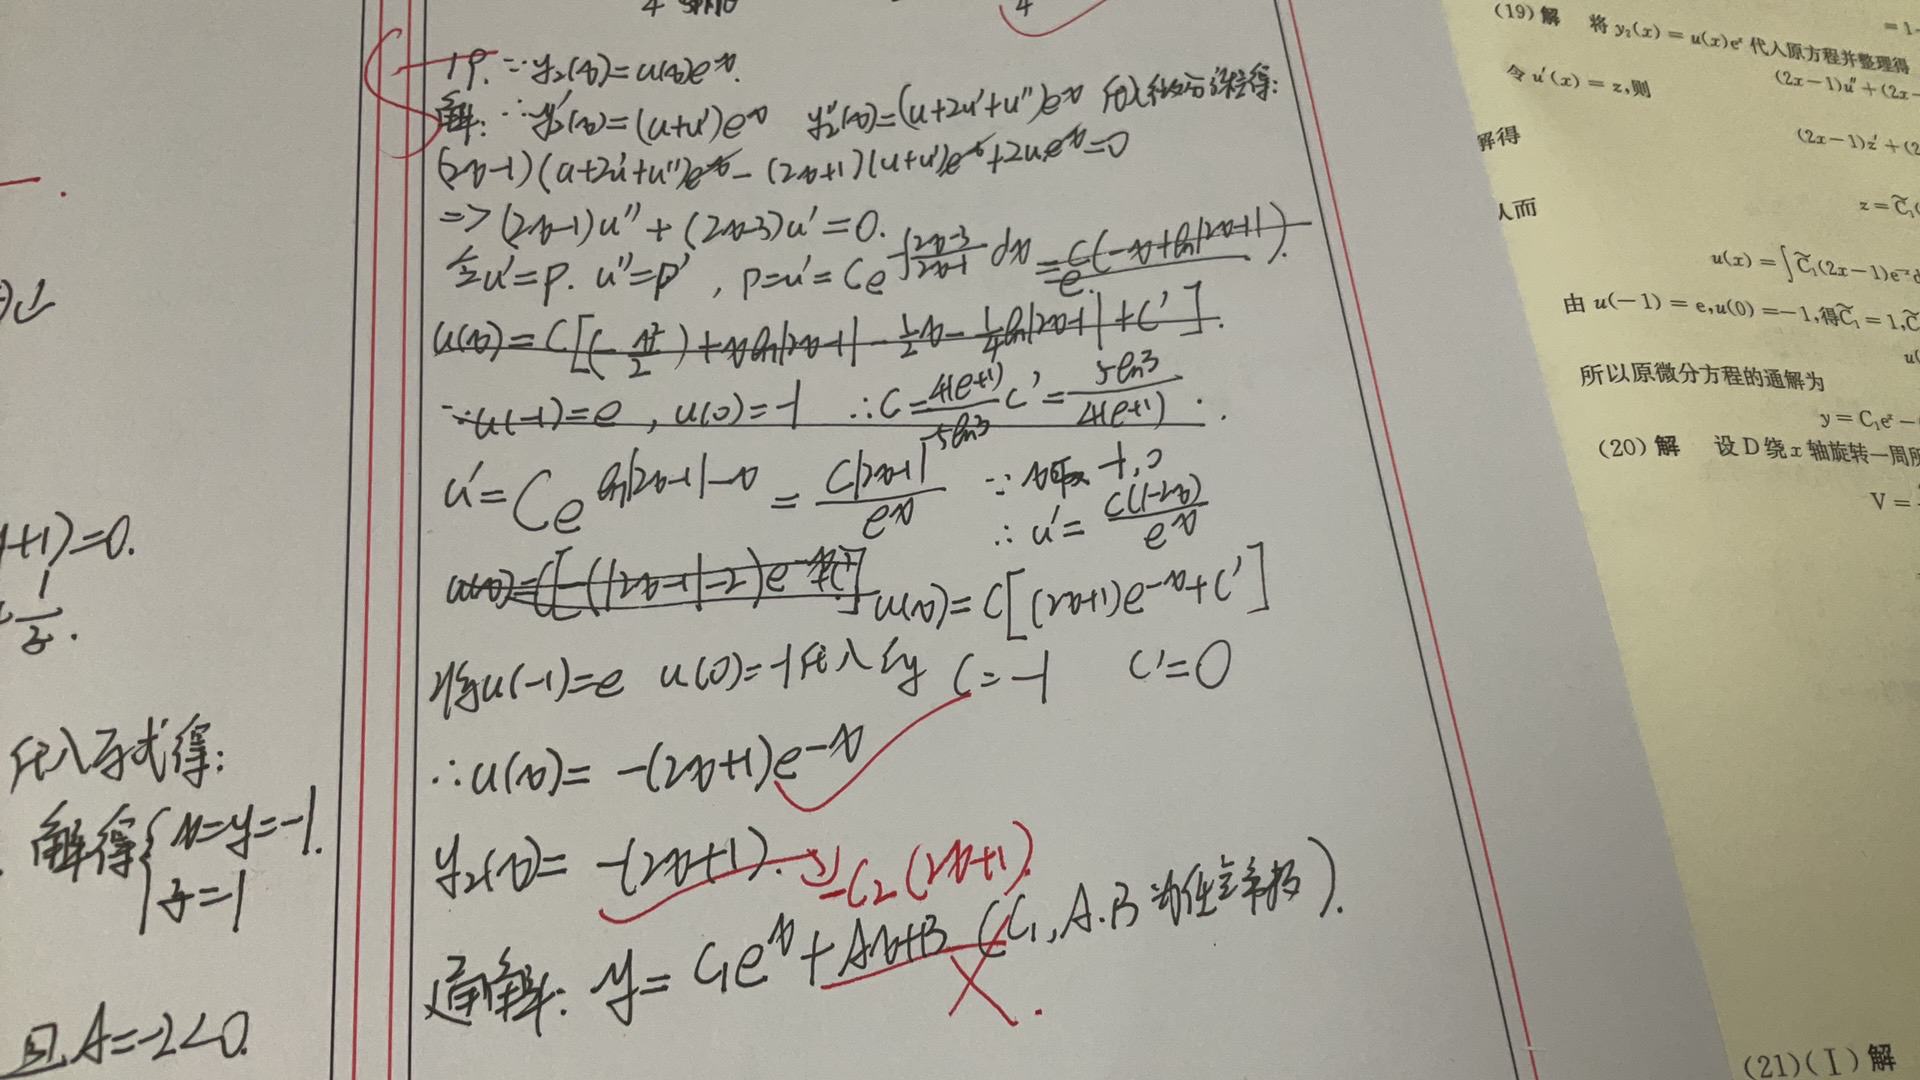 +1)=0.
代入原式得:
解得{x=y=-1.
z=-1
且A=-2<0.
19. ∵y₂(x)=u(x)eˣ.
解: ∵y₂'(x)=(u+u')eˣ y₂''(x)=(u+2u'+u'')eˣ 代入微分方程得:
(2x-1)(u+2u'+u'')eˣ-(2x+1)(u+u')eˣ+2ueˣ=0
=>(2x-1)u''+(2x-3)u'=0.
令u'=p. u''=p', p=u'=Ce^{-∫(2x-3)/(2x-1) dx}
u(x)=C[(-x²/2)+xln|2x-1|-1/2x-1/4ln|2x-1|+C'].
∵u(-1)=e, u(0)=-1 ∴C=4(e+1)/5ln3 C'=5ln3/4(e+1).
u'=Ce^{ln|2x-1|-x}=C|2x-1|/eˣ ∵x取-1,0
∴u'=C(1-2x)/eˣ
u(x)=C[(2x+1)e⁻ˣ+C']
将u(-1)=e u(0)=-1代入得 C=-1 C'=0
∴u(x)=-(2x+1)e⁻ˣ
y₂(x)=-(2x+1). -C₂(2x+1)
通解: y=C₁eˣ+Ax+B (C₁,A.B为任意常数).
(19)解 将 y₂(x)=u(x)eˣ 代入原方程并整理得
(2x-1)u''+(2x-
令 u'(x)=z,则
(2x-1)z'+(2
解得
z=C̃₁(
从而
u(x)=∫C̃₁(2x-1)e⁻ˣd
由 u(-1)=e,u(0)=-1,得C̃₁=1,C̃
u(
所以原微分方程的通解为
y=C₁eˣ-
(20)解 设 D 绕 x 轴旋转一周所
V=
(21)(Ⅰ)解